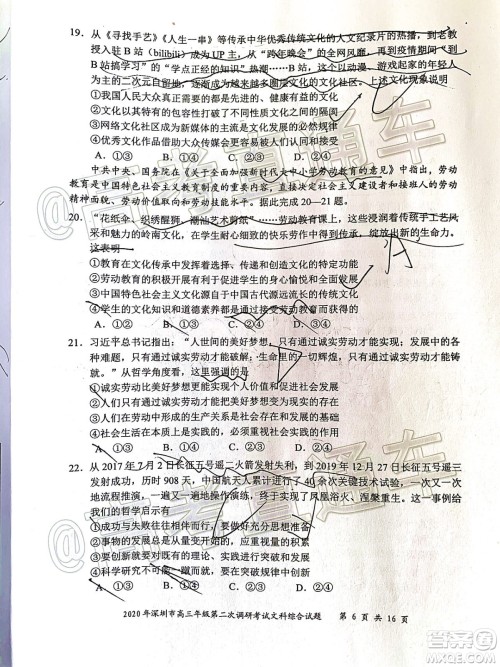 19. 从《寻找手艺》《人生一串》等传承中华优秀传统文化的人文纪录片的热播，到老教
授入驻 B 站（bilibili）成为 UP 主，从“跨年晚会”的全网风靡，再到疫情期间“到 B
站搞学习”的“学点正经的知识”热潮……B 站，这个以动漫、游戏起家的年轻人
为主的二次元自留地，已经成为越来越多圈层文化的社区。上述文化现象说明
①我国人民大众真正需要的是先进的、健康有益的文化
②文化以其丰富的内容和形式打破了不同性质文化间的隔阂
③网络文化社区成为新媒体的主流是文化发展的必然规律
④优秀文化作品借助大众传媒的特有功能会更富有影响力
A. ①③ B. ①④ C. ②③ D. ②④
中共中央、国务院《关于全面加强新时代大中小学劳动教育的意见》中指出，劳动
教育是中国特色社会主义教育制度的重要内容，直接决定社会主义建设者和接班人的劳动
精神面貌、劳动价值取向和劳动技能水平。据此完成 20—21 题。
20. “花纸伞、织绣醒狮、潮汕艺术剪纸”……劳动教育课上，这些浸润着传统手工艺风
采和魅力的岭南文化，在学生耐心细致的快乐劳作中得到传承，绽放出新的生命力。
这表明
①教育在文化传承中发挥着选择、传递和创造文化的特定功能
②劳动教育的积极开展有益于学生的身心愉悦和全面发展
③中国特色社会主义文化源于中国古代源远流长的传统文化
④学生的知识文化和道德素养都的通过接受劳动教育而提升
A. ①② B. ①③ C. ②④ D. ③④
A
21. 习近平总书记指出：“人世间的美好梦想，只有通过诚实劳动才能实现；发展中的各
种难题，只有通过诚实劳动才能破解；生命里的一切辉煌，只有通过诚实劳动才能铸
就。”从哲学角度看，这里强调的是
①诚实劳动能更好地实现个人价值和促进社会发展
②人们只有在劳动中才能实现和创造自己的价值
③人类的美好梦想来源于实践，实践是认识的目的
④社会发展是在人类认识世界和改造世界中实现的
A. ①② B. ①④ C. ②③ D. ③④
22. 从 2017 年 7 月 2 日长征五号遥二火箭发射失利，到 2019 年 12 月 27 日长征五号遥三
发射成功，历时 908 天，中国航天人累计进行了 40 余次关键技术试验，一次又一次
地流程推演，一遍又一遍地操作演练，终于实现了凤凰浴火、涅槃重生。这一事例给
我们的哲学启示有
①成功与失败往往是同时存在的，要用全面的观点分析问题
②事物的发展总是动态的、变化的，要积极促成事物的质变
③要创新就要对既有的理论和实践进行新的突破和超越
④创新要在把握规律的基础上，在实践中突破规律来实现
A. ①③ B. ①④ C. ②③ D. ②④
2020 年深圳市高三年级第二次调研考试文科综合试题 第 6 页 共 16 页